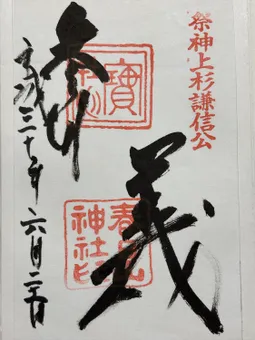 祭神上杉謙信公
義
春日山
神社印
参拝
寶
平成三十年 六月二